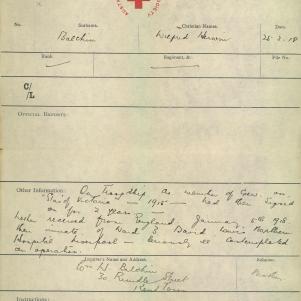 SOCIETY
AUSTR
No.
Surname.
Christian Names.
Date.
Balchin
Wilfred
25.2.18
Rank.
Regiment, &c.
File No.
C/
/L
OFFICIAL REPORTS:
Other Information: On Troopship as member of Crew. on
"Star of Victoria" — 1915 — had then Signed
on for 2 years —
Letter received from England, January 5th 1918.
then inmate of Ward 3 David Northern
Hospital Liverpool — seriously ill contemplated
an operation.
Inquirer's Name and Address.
Relation.
W Balchin
Mother
30 Rundle Street
Kent Town
Instructions: